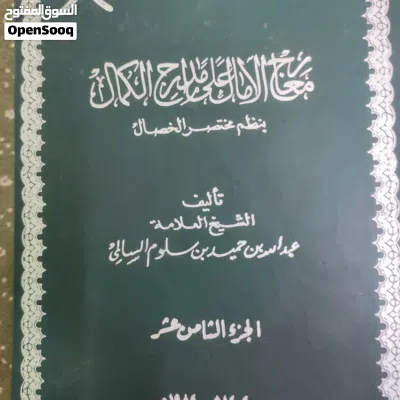 السوق المفتوح
OpenSooq
معارج الآمال على مدارج الكمال
بنظم مختصر الخصال
تأليف
الشيخ العلامة
عبدالله بن حميد بن سلوم السالمي
الجزء الثامن عشر